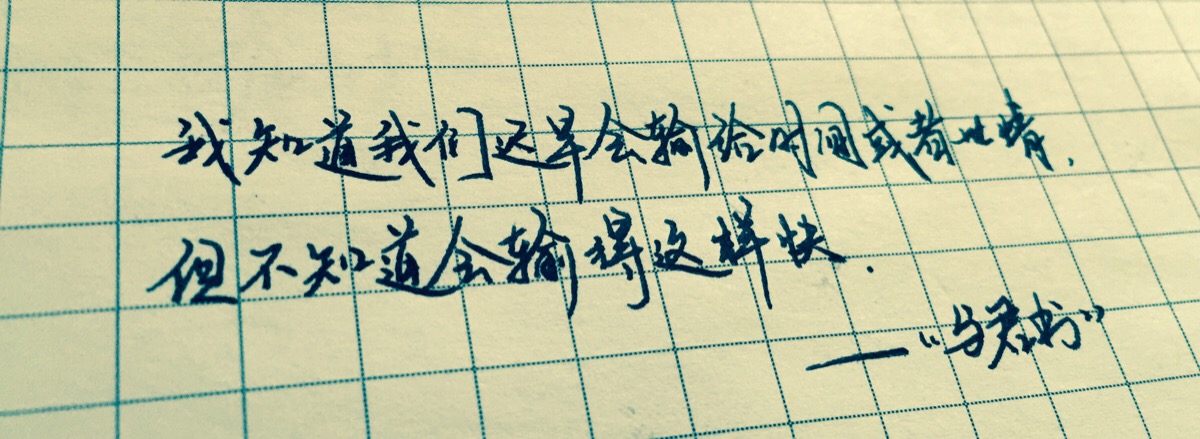 我知道我们迟早会输给时间或者世情.
但不知道会输得这样快.
——“与君书”